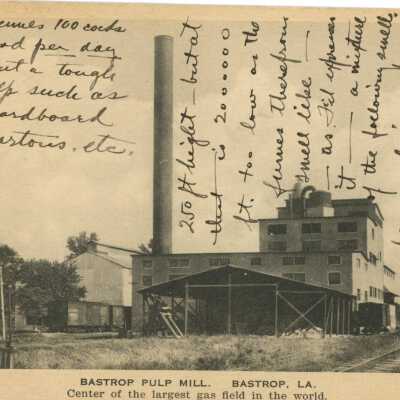 100 cords
per day
a tough
such as
cardboard
cartons, etc.
250 ft hight — but at
that — is 2000000
ft. too low as the
fumes therefrom
smell like —
— as I'd express
it — a mixture
of the following smell:
BASTROP PULP MILL. BASTROP, LA.
Center of the largest gas field in the world.